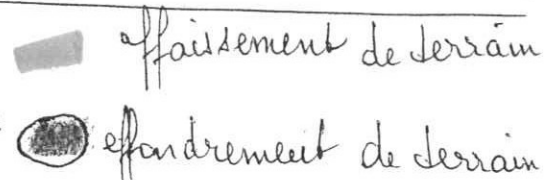 affaissement de terrain
effondrement de terrain